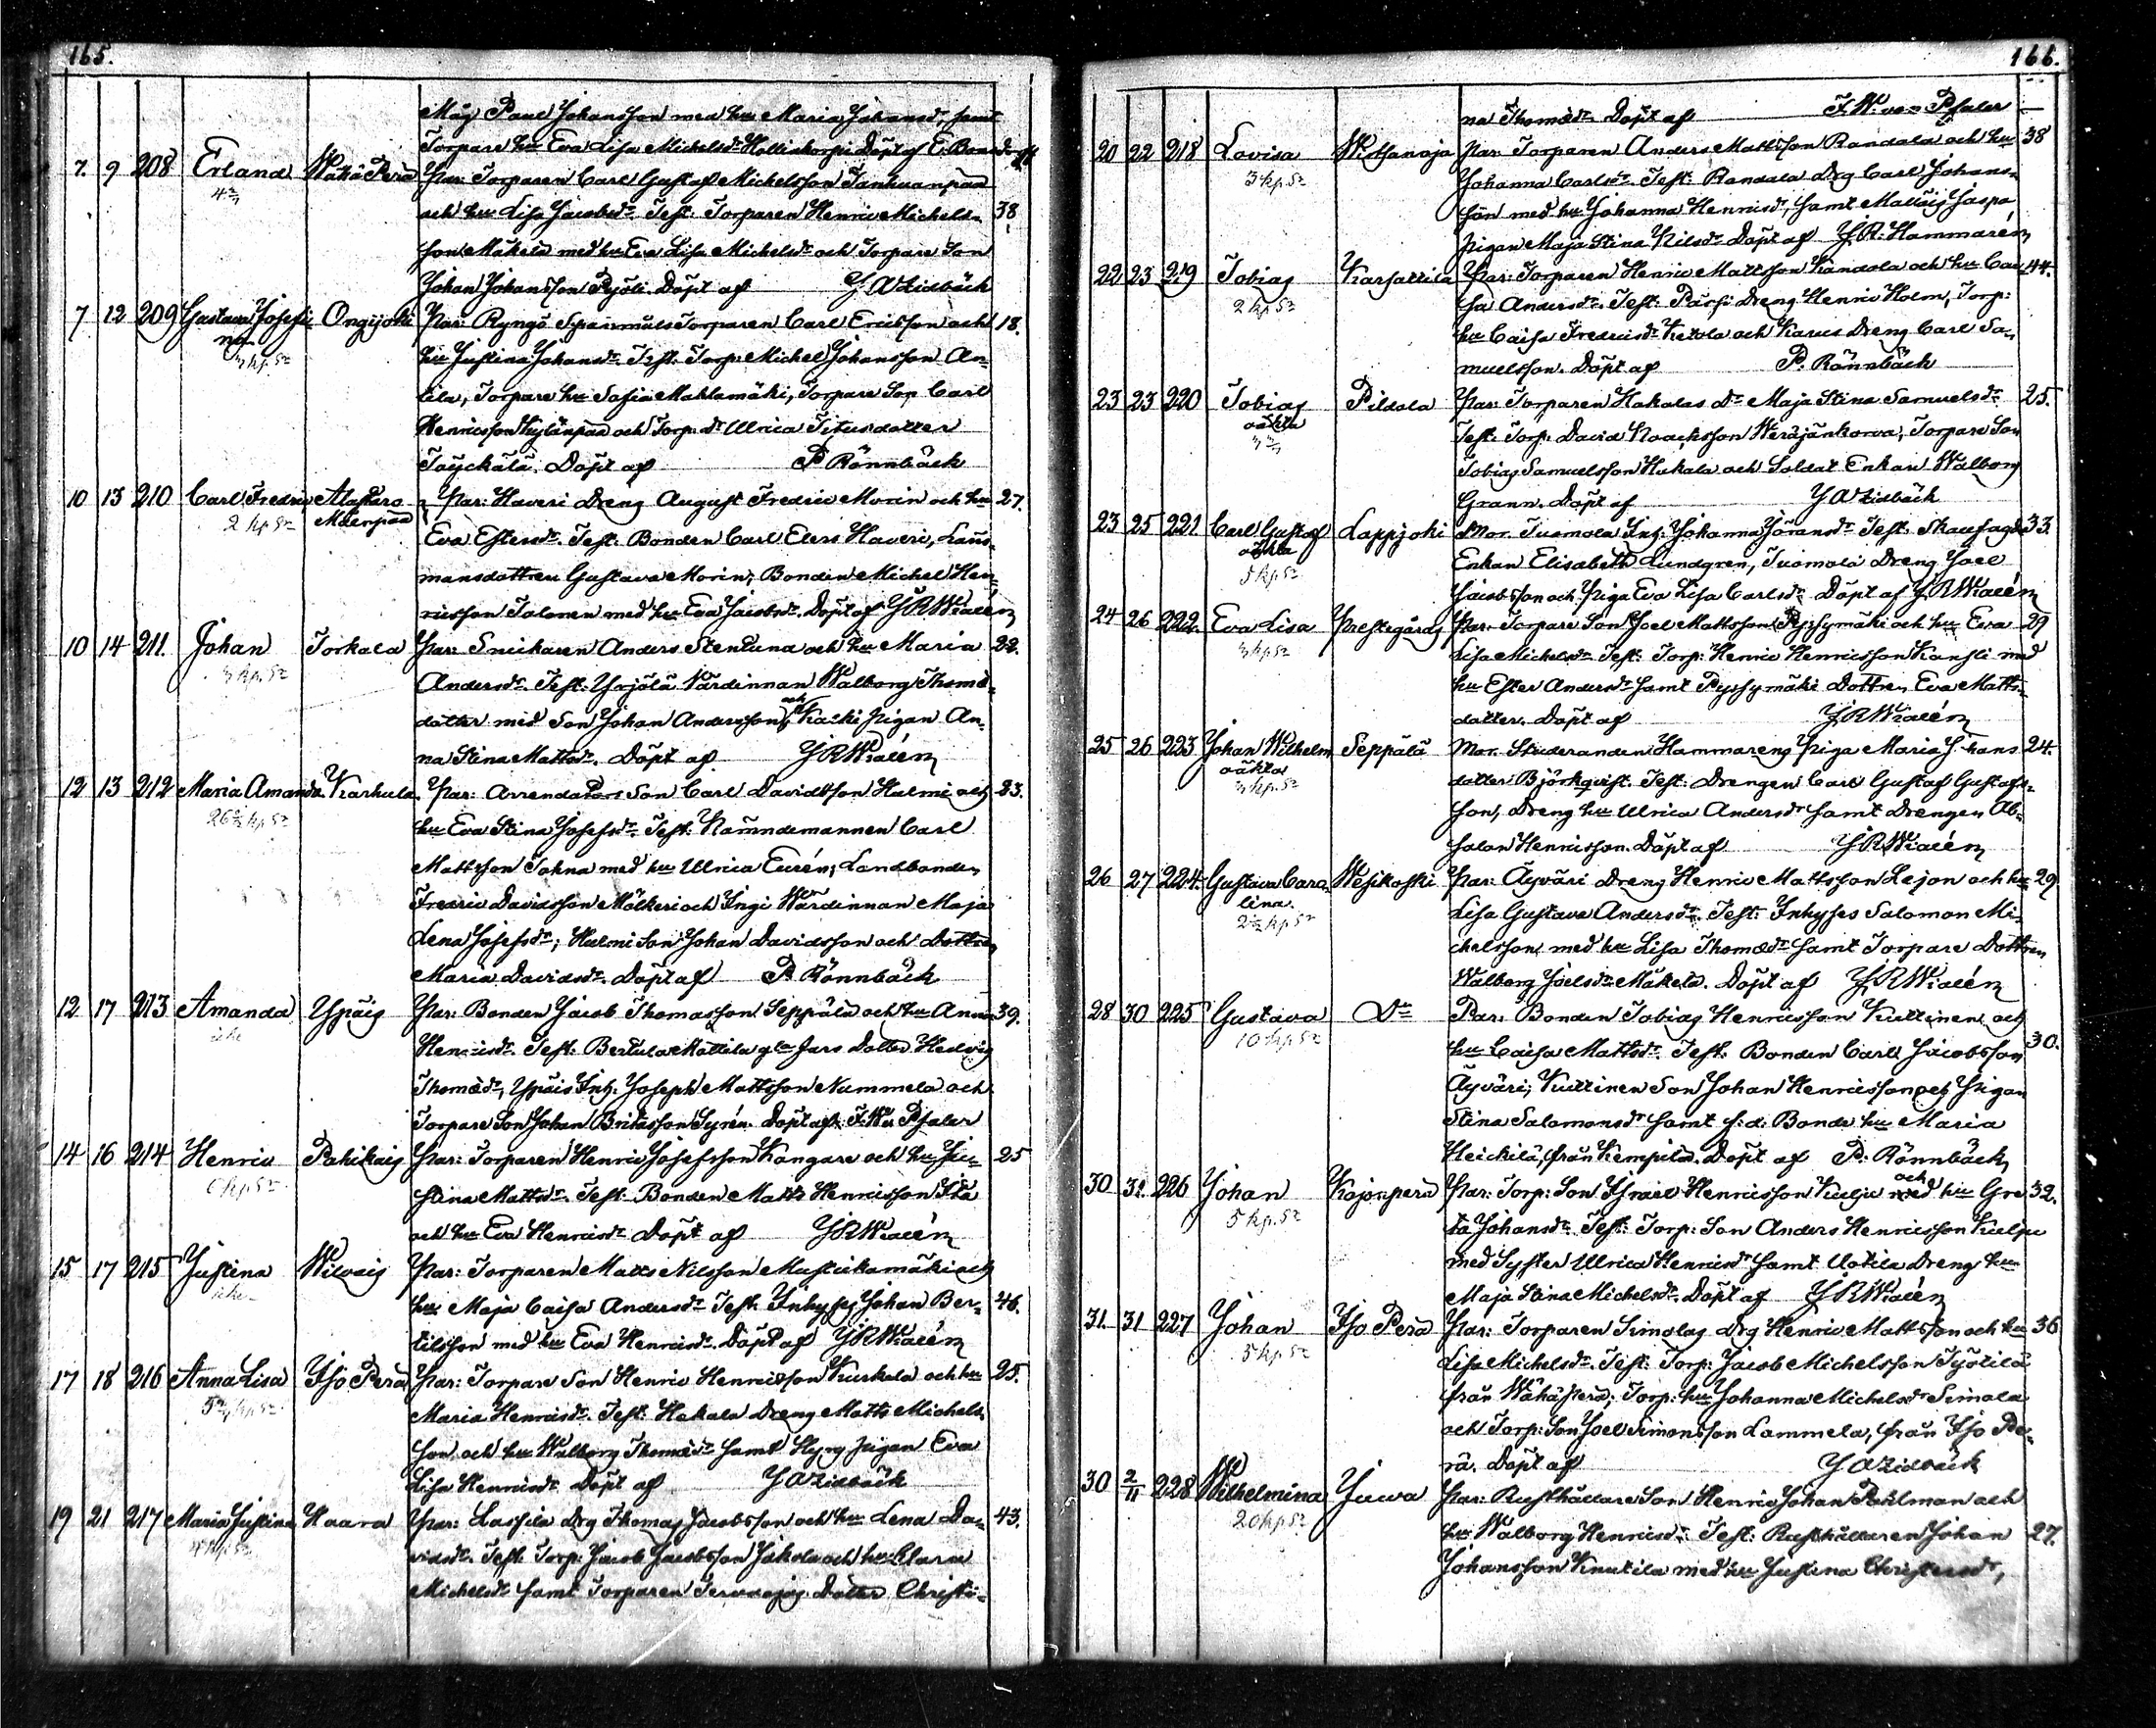 165.
Måg Paul Johansson med hu Maria Johansdr, samt
Torpare hu Eva Lisa Michelsdr Hollinkorpi Döpt af
7. 9 208 Erland Wähä Perä Par: Torparen Carl Gustaf Michelsson Tanhuanpää
och hu Lisa Jacobsdr. Test: Torparen Henric Michels- 38
son Mäkelä med hu Eva Lisa Michelsdr och Torpare Son
Johan Johansson Pyöli. Döpt af J A Zidbäck
7 12 209 Gustava Josefi- Ongijoki Par: Ryngö Spanmåls Torparen Carl Ericsson och 18.
na
3 kp. 5r
hu Justina Johansdr. Test: Torp: Michel Johansson An-
tila, Torpare hu Sofia Mahlamäki, Torpare Son Carl
Henricsson Kylänpää och Torp. dr Ulrica Titusdotter
Döpt af P Rönnbäck
10 13 210 Carl Fredric Alastaro Par: Haveri Dreng August Fredric Morin och hu 27.
2 kp 5r Mäenpää
Eva Estersdr. Test: Bonden Carl Elers Haveri, Läns-
mansdottren Gustava Morin, Bonden Michel Hen-
ricsson Talonen med hu Eva Jacobsdr. Döpt af J R Widlén
10 14 211. Johan Torkala Par: Snickaren Anders Stenluna och hu Maria 22.
3 kp. 5r
Andersdr. Test: Yrjölä Värdinnan Walborg Thomæ-
dotter med Son Johan Andersson, och pigan An-
na Stina Mattsdr. Döpt af J R Widlén
12 13 212 Maria Amanda Karhula. Par: Arrendators Son Carl Davidsson Halmi och 23.
hu Eva Stina Josefsdr. Test: Nämndemannen Carl
Mattsson Tahna med hu Ulrica Eurén; Landbonden
Fredric Davidsson Mälkeri och Ingi Wärdinnan Maja
Lena Josefsdr; Hulmi Son Johan Davidsson och Dottren
Maria Davidsdr. Döpt af P. Rönnbäck
12 17 213 Amanda Ypäis Par: Bonden Jacob Thomasson Seppälä och hu Anna 39.
Henricsdr. Test: Bertula Mattila gla Dotter Hedvig
Thomædr, Ypäis Inh: Joseph Mattsson Nummela och
Torpare Son Johan Syrén. Döpt af: F.W.v Pfaler
14 16 214 Henric Pahikais Par: Torparen Henric Josefsson Kangare och hu Ju- 25
6 kp. 5r
stina Mattsdr. Test: Bonden Matts Henricsson
och hu Eva Henricsdr Döpt af J R Widlén
15 17 215 Justina Wilvais Par: Torparen Matts Nilsson Mustukamäki och
hu Maja Caisa Andersdr Test: Inhyses Johan Ber- 46.
tilsson med hu Eva Henricsdr. Döpt af J R Widlén
17 18 216 Anna Lisa Iso Perä Par: Torpare Son Henric Henricsson Kuskala och hu 25.
Maria Henricsdr. Test: Hakala Dreng Matts Michels-
son och hu Walborg Thomædr samt pigan Eva
Lisa Henricsdr Döpt af J A Zidbäck
19 21 217 Maria Justina Haara Par: Lassila Drg Thomas Jacobsson och hu Lena Da- 43.
vidsdr. Test. Torp. Jacob Jacobsson Jokela och hu Clara
Michelsdr samt Torparen Dotter Christi-
166.
na Thomædr. Döpt af F.W. von Pfaler
20 22 218 Lovisa Wirtsanoja Par: Torparen Anders Mattsson Randala och hu 38
3 kp 5r
Johanna Carlsdr. Test: Randala Drg Carl Johans-
son med hu Johanna Henricsdr, samt Mattais
pigan Maja Stina Nilsdr. Döpt af J. R. Hammarén
22 23 219 Tobias Karsattila Par: Torparen Henric Mattsson Kandola och hu Cai- 44.
2 kp 5r
sa Andersdr. Test: Pärssi Dreng Henric Holm, Torp:
hu Caisa Fredricsdr Ketola och Karus Dreng Carl Sa-
muelsson. Döpt af P. Rönnbäck
23 23 220 Tobias Pildola Par: Torparen Hakalas dr Maja Stina Samuelsdr 25.
oäkta
Test: Torp. David Noacksson Weräjänkorva, Torpare Son
Tobias Samuelsson Hakala och Soldat Enkan Walborg
Grann. Döpt af J A Zidbäck
23 25 221 Carl Gustaf Lappjoki Mor. Tuomola Inh: Johanna Jöransdr Test. 33.
oäkta
5 kp 5r
Enkan Elisabeth Lundgren, Tuomola Dreng Joel
Jacobsson och Piga Eva Lisa Carlsdr. Döpt af J. R Widlén
24 26 222. Eva Lisa Prestegårds Par: Torpare Son Joel Mattsson Pyssymäki och hu Eva 29
3 kp. 5r
Lisa Michelsdr Test: Torp: Henric Henricsson Kansli med
hu Ester Andersdr samt Pyssymäki Dottren Eva Matts-
dotter. Döpt af J R Widlén
25 26 223 Johan Wilhelm Seppälä Mor. Studeranden Hammaréns Piga Maria Johans 24.
oäkta
3 kp. 5r
dotter Björkqvist. Test: Drengen Carl Gustaf Gustafs-
son, Dreng hu Ulrica Andersdr samt Drengen Ab-
salon Henricsson. Döpt af J R Widlén
26 27 224. Gustava Caro- Wesikoski Par: Äyväri Dreng Henric Mattsson Lejon och hu 29.
lina.
2½ kp 5r
Lisa Gustava Andersdr. Test: Inhyses Salomon Mi-
chelsson med hu Lisa Thomædr samt Torpare Dottren
Walborg Joelsdr Mäkelä. Döpt af J R Widlén
28 30 225 Gustava Dr Par: Bonden Tobias Henricsson Kuttinen och
10 kp 5r
hu Caisa Mattsdr. Test: Bonden Carl Jacobsson 30.
Äyväri; Kuttinen Son Johan Henricsson och Pigan
Stina Salomonsdr samt f.d. Bonde hu Maria
Heickilä, från Kempilä. Döpt af P. Rönnbäck
30 31. 226 Johan Kojonperä Par: Torp: Son Israel Henricsson Kulju och med hu Gre- 32.
5 kp. 5r
ta Johansdr Test: Torp: Son Anders Henricsson Kulju
med Syster Ulrica Henricsdr samt Uotila Dreng hu
Maja Stina Michelsdr. Döpt af J R Widlén
31. 31 227 Johan Iso Perä Par: Torparen Simolas Drg Henric Mattsson och hu 36
5 kp. 5r
Lisa Michelsdr. Test: Torp: Jacob Michelsson Työtilä
från Wähäperä; Torp: hu Johanna Michelsdr Simola
och Torp: Son Joel Simonsson Lammela, från Iso Pe-
rä. Döpt af J A Zidbäck
30 2/11 228 Wilhelmina Juva Par: Rusthållare Son Henric Johan Pahlman och
20 kp 5r
hu Walborg Henricsdr. Test: Rusthållaren Johan 27.
Johansson Knutila med hu Justina Christersdr,